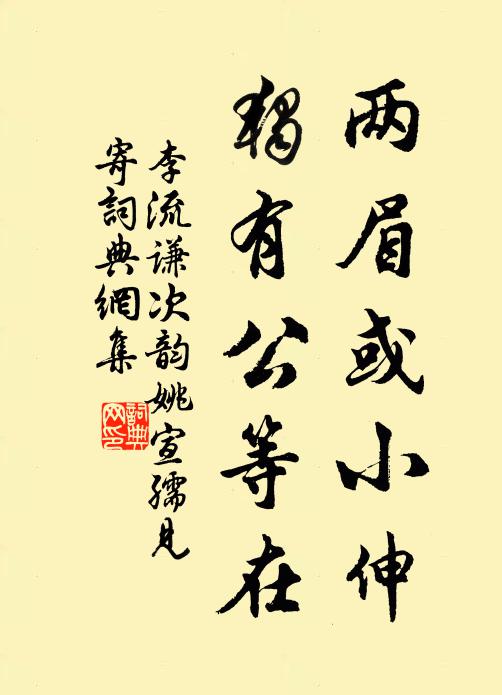 两眉或小伸
独有公等在
李流谦次韵姚宣孺见
寄詞典網集
詞典网印